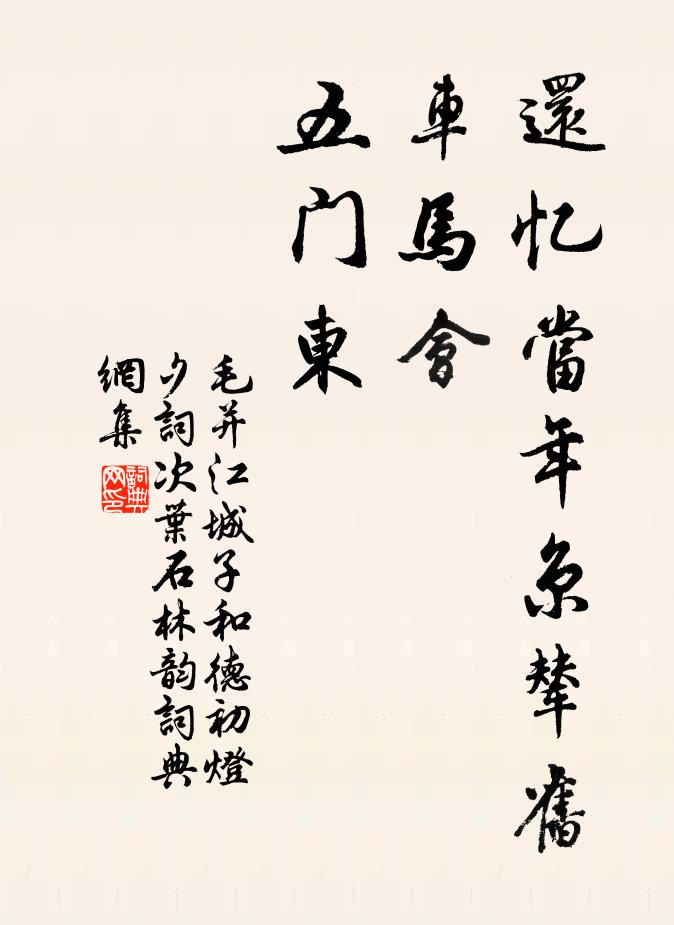 還忆當年京輦舊
車馬會
五门東
毛并江城子和德初燈
夕詞次葉石林韵詞典
網集
詞典网印